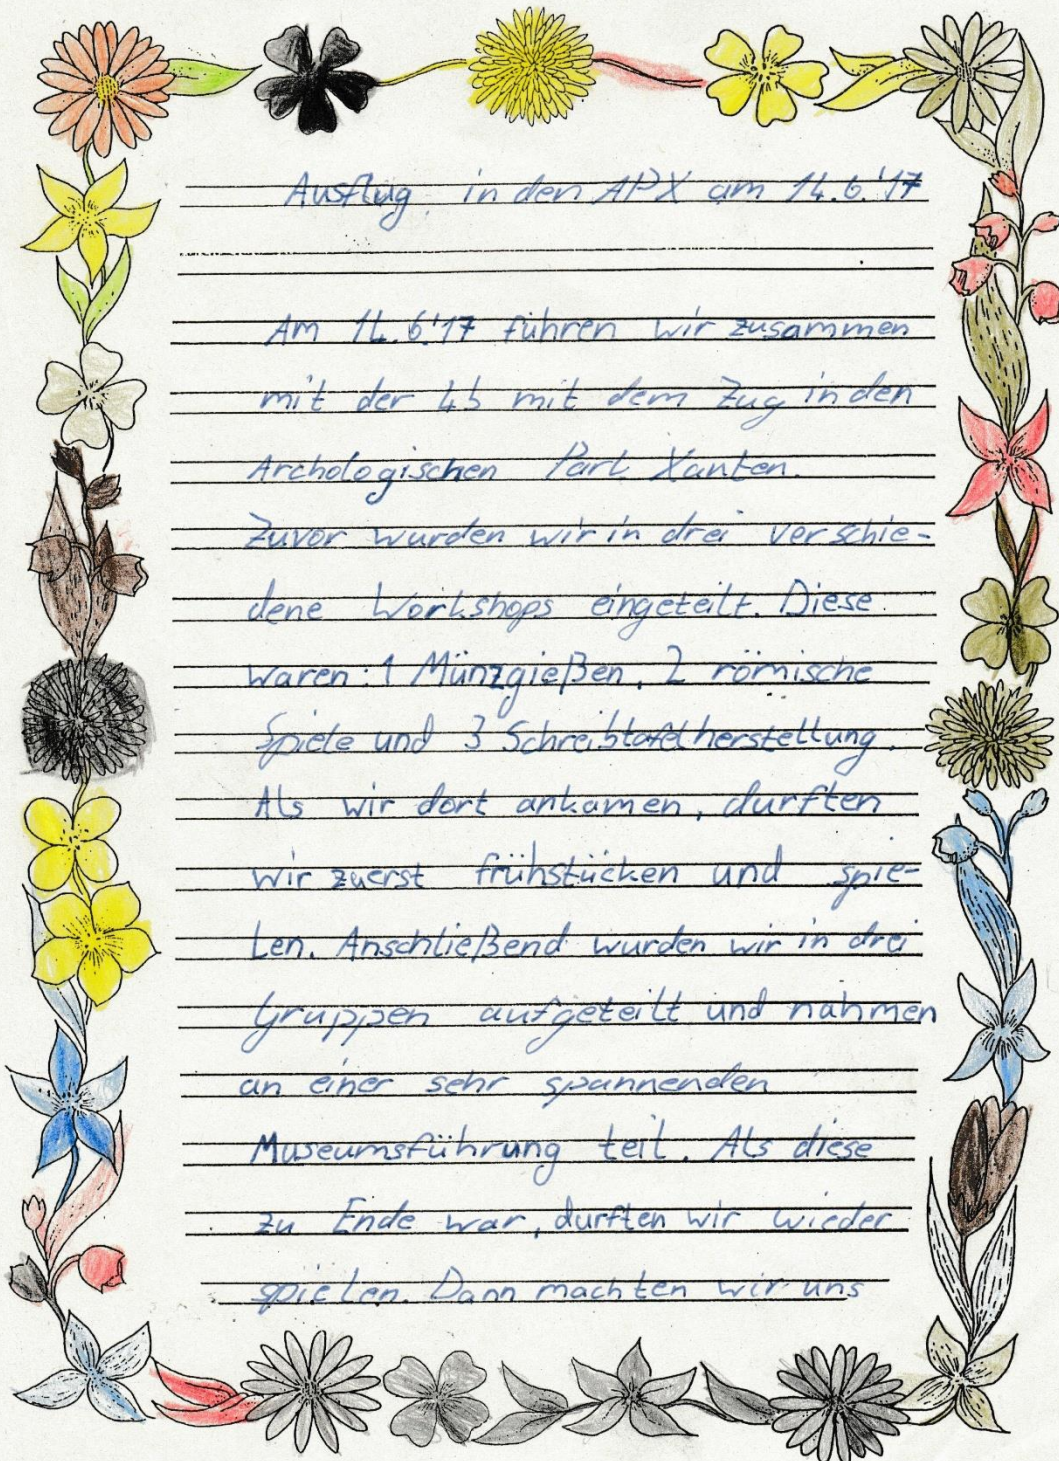 Ausflug in den APX am 14.6.'17
Am 14.6.'17 führen wir zusammen
mit der 4b mit dem Zug in den
Archologischen Park Xanten.
Zuvor wurden wir in drei verschie-
dene Workshops eingeteilt. Diese
waren: 1 Münzgießen, 2 römische
Spiele und 3 Schreibtafelherstellung.
Als wir dort ankamen, durften
wir zuerst frühstücken und spie-
len. Anschließend wurden wir in drei
Gruppen aufgeteilt und nahmen
an einer sehr spannenden
Museumsführung teil. Als diese
zu Ende war, durften wir wieder
spielen. Dann machten wir uns